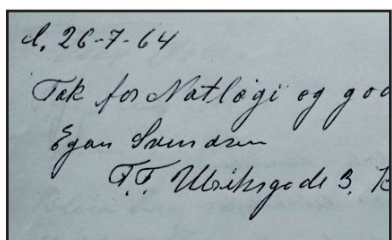 d, 26-7-64
Tak for Natlogi og god
Egon Svendsen
F.F. Ulriksgade 3,